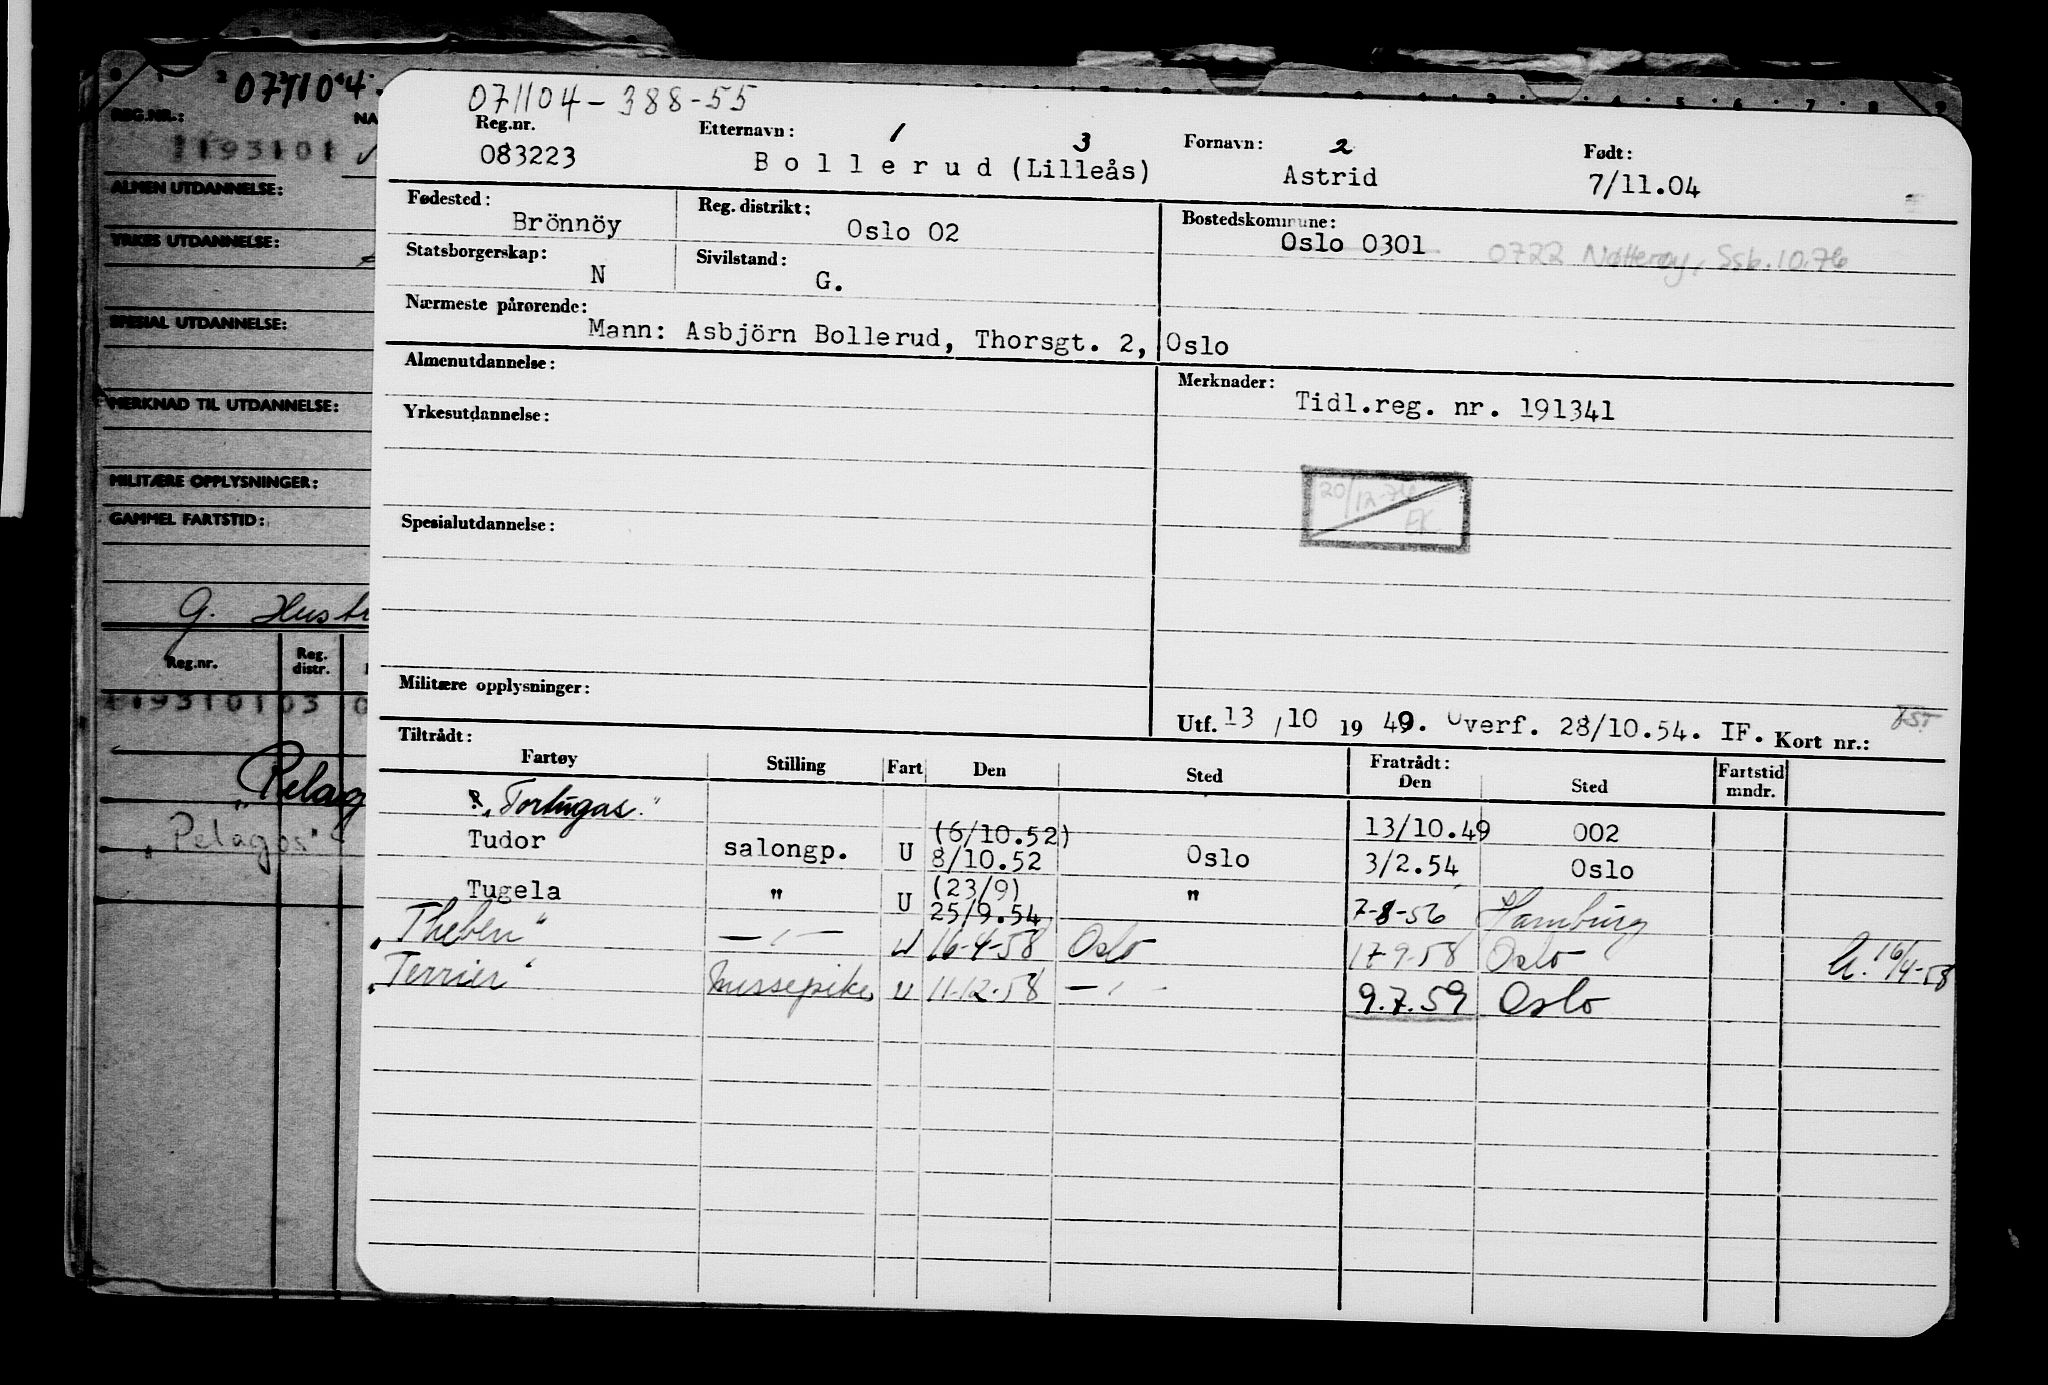 071104
REG.NR.:
NA
1193101
ALMEN UTDANNELSE:
YRKES UTDANNELSE:
SPESIAL UTDANNELSE:
MERKNAD TIL UTDANNELSE:
MILITÆRE OPPLYSNINGER:
GAMMEL FARTSTID:
G. Hust
Reg.nr. Reg. distr.
119310103
"Pelag
"Pelagos"
071104-388-55
Reg.nr. Etternavn: 1 3 Fornavn: 2 Født:
083223 Bollerud (Lilleås) Astrid 7/11.04
Fødested: Reg. distrikt: Bostedskommune:
Brönnöy Oslo 02 Oslo 0301 0722 Nøtterøy, Ssb.10.76
Statsborgerskap: Sivilstand:
N G.
Nærmeste pårørende:
Mann: Asbjörn Bollerud, Thorsgt. 2, Oslo
Almenutdannelse: Merknader:
Tidl.reg. nr. 191341
Yrkesutdannelse:
20/12-76 EK
Spesialutdannelse:
Militære opplysninger:
Utf. 13/10 1949. Overf. 28/10.54. IF. Kort nr.:
Tiltrådt: Fratrådt:
Fartøy Stilling Fart Den Sted Den Sted Fartstid mndr.
"Tortugas." 13/10.49 002
Tudor salongp. U (6/10.52) 8/10.52 Oslo 3/2.54 Oslo
Tugela " U (23/9) 25/9.54 " 7-8-56 Hamburg
"Theben" —〃— U 16-4-58 Oslo 17-9-58 Oslo 16/4-58
"Terrier" messepike U 11-12-58 —〃— 9.7.59 Oslo